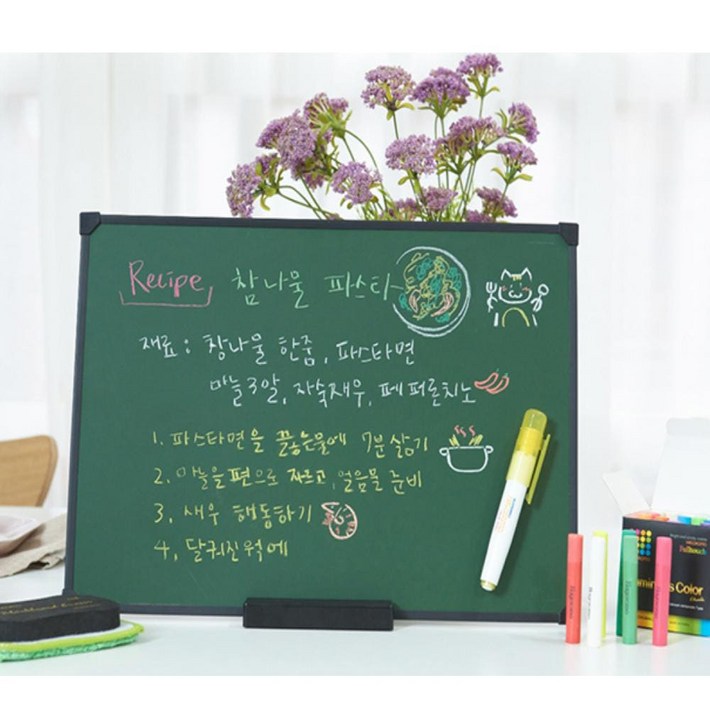 Recipe 참나물 파스타
재료 : 참나물 한줌, 파스타면
마늘3알, 자숙새우, 페퍼론치노
1. 파스타면을 끓는물에 7분 삶기
2. 마늘을 편으로 자르고, 얼음물 준비
3, 새우 해동하기
4, 달궈진 웍에
Color